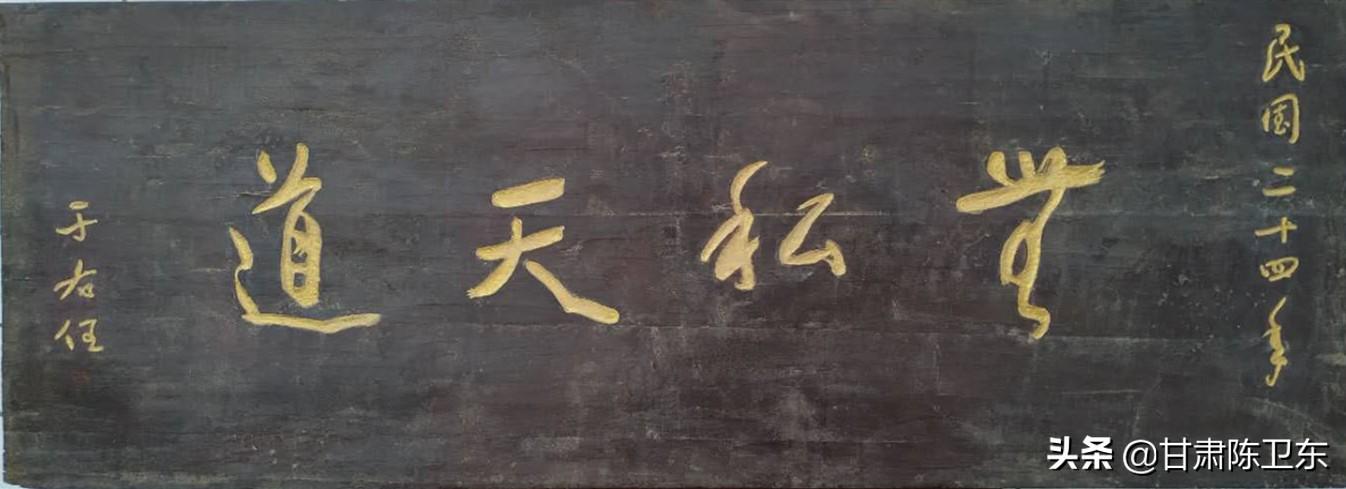 民国二十四年
無私天道
于右任
头条 @甘肃陈卫东